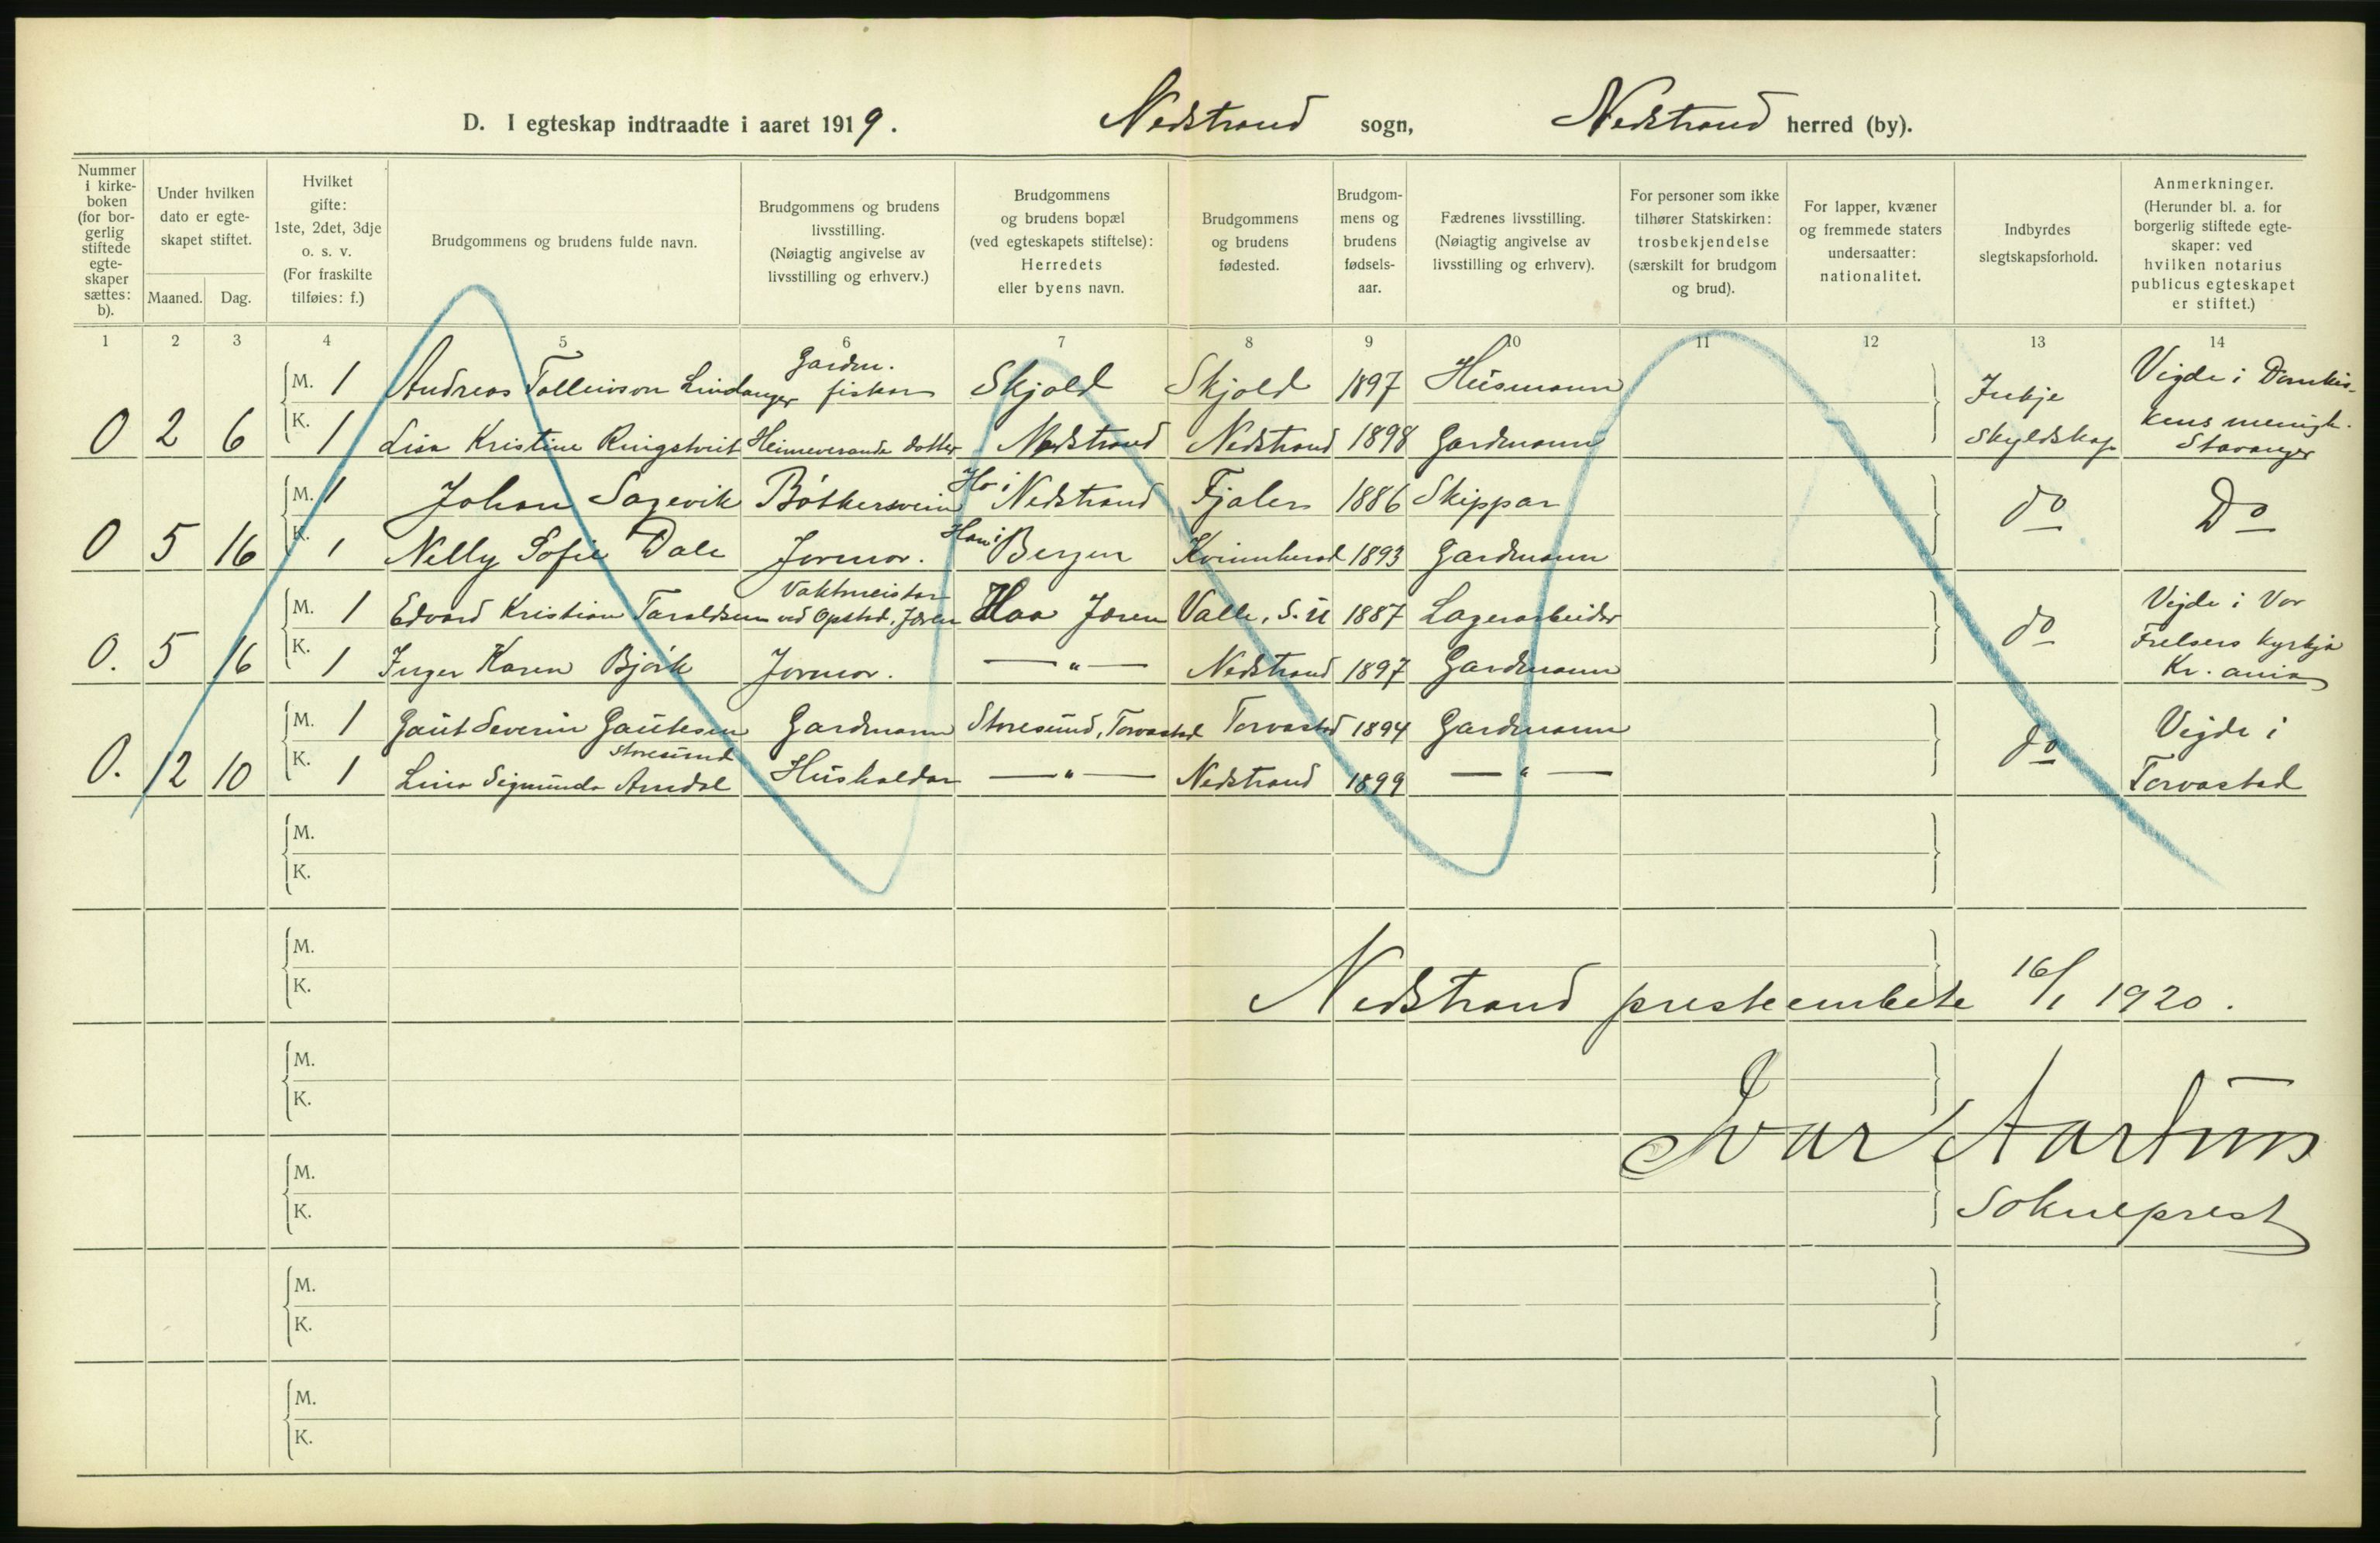 D. I egteskap indtraadte i aaret 1919. Nedstrand sogn, Nedstrand herred (by).
Nummer i kirke-boken (for bor-gerlig stiftede egte-skaper sættes: b).
Under hvilken dato er egte-skapet stiftet.
Maaned. Dag.
Hvilket gifte: 1ste, 2det, 3dje o. s. v. (For fraskilte tilføies: f.)
Brudgommens og brudens fulde navn.
Brudgommens og brudens livsstilling. (Nøiagtig angivelse av livsstilling og erhverv.)
Brudgommens og brudens bopæl (ved egteskapets stiftelse): Herredets eller byens navn.
Brudgommens og brudens fødested.
Brudgom-mens og brudens fødsels-aar.
Fædrenes livsstilling. (Nøiagtig angivelse av livsstilling og erhverv).
For personer som ikke tilhører Statskirken: trosbekjendelse (særskilt for brudgom og brud).
For lapper, kvæner og fremmede staters undersaatter: nationalitet.
Indbyrdes slegtskapsforhold.
Anmerkninger. (Herunder bl. a. for borgerlig stiftede egte-skaper: ved hvilken notarius publicus egteskapet er stiftet.)
1 2 3 4 5 6 7 8 9 10 11 12 13 14
M. 1 Andreas Tolleivson Lindanger Gardm. fiskar Skjold Skjold 1897 Husmann Inkje Vigde i Domkir-
0 2 6 K. 1 Lisa Kristine Ringstveit Heimeverande dotter Nedstrand Nedstrand 1898 Gardmann Skyldskap kens menigh. Stavanger
M. 1 Johan Sagevik Bøtkersvein Ho i Nedstrand Fjaler 1886 Skippar do Do
0 5 16 K. 1 Nelly Sofie Dale Jormor. Han i Bergen Kvinnherad 1893 Gardmann
M. 1 Edvard Kristian Taraldsen Vaktmeistar ved Opstad, Jæren Haa Jæren Valle, S. 1887 Lagerarbeider do Vigde i Vor
0. 5 16 K. 1 Inger Karen Bjørk Jormor. — " — Nedstrand 1897 Gardmann Frelsers kyrkja Kr. ania
M. 1 Gaut Severin Gautesen Storesund Gardmann Storesund, Torvastad Torvastad 1894 Gardmann do Vigde i
0. 12 10 K. 1 Lina Sigmunda Amdal Hushaldar — " — Nedstrand 1899 — " — Torvastad
M.
K.
M.
K.
Nedstrand presteembete 16/1 1920.
M.
K.
Ivar Aartun
M.
K.
Sokneprest
M.
K.
M.
K.